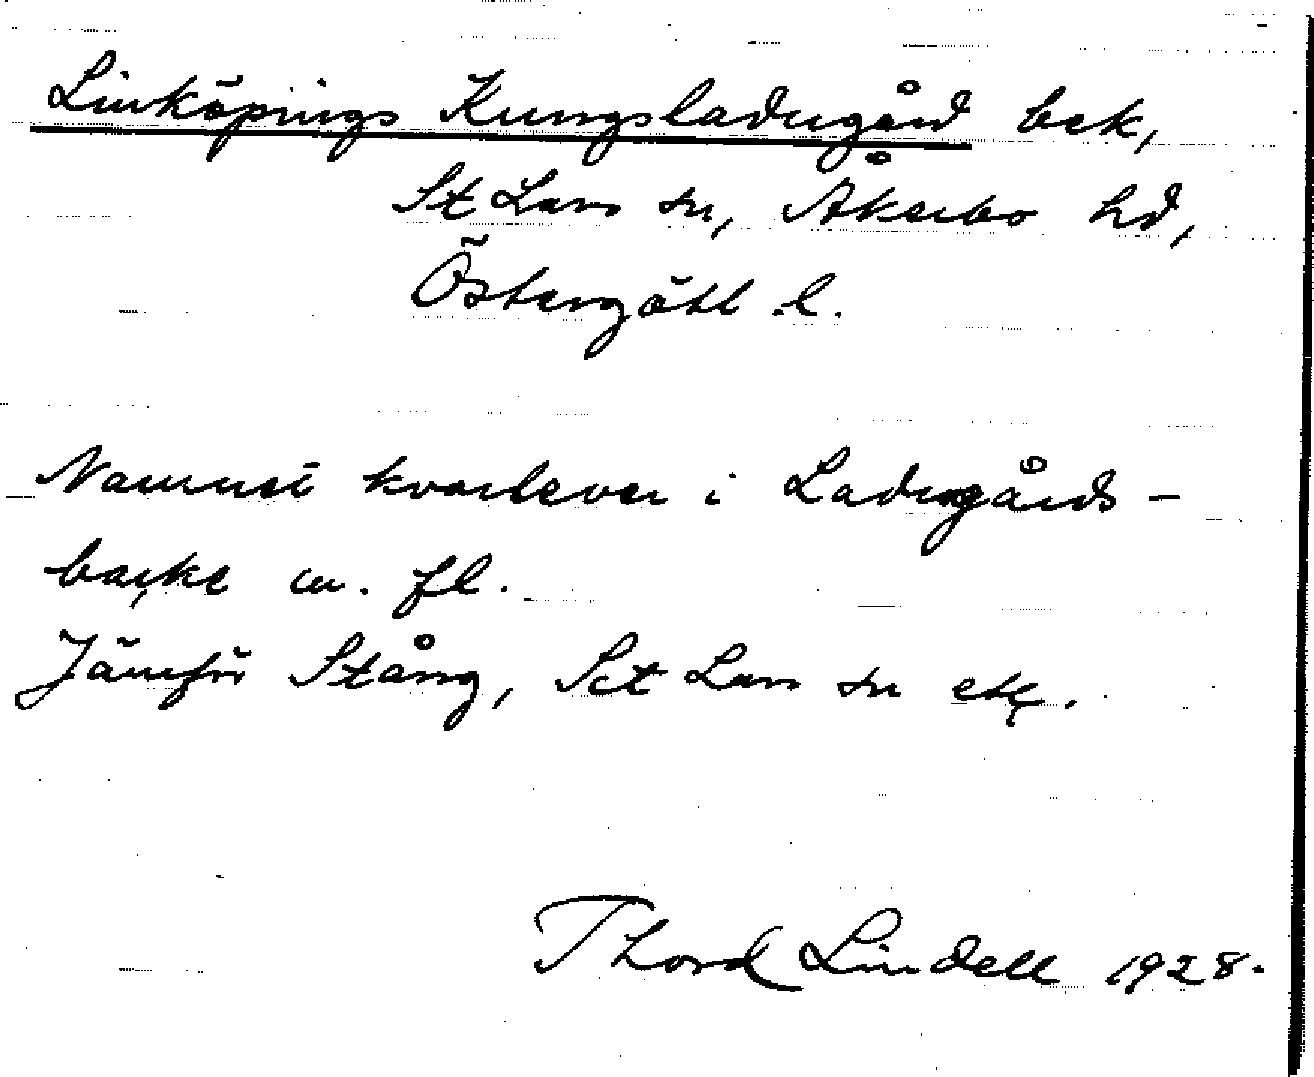 Linköpings Kungsladugård bek,
St Lars sn, Åkerbo hd,
Östergötl. l.
Namnet kvarlever i Ladugårds-
backe m. fl.
Jämför Stång, Sct Lars sn etc.
Thord Lindell 1928.